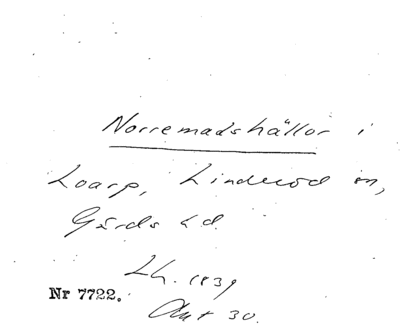 Norremadshällor i
Loarp, Linderöd sn,
Gärds hd.
Lh. 1839
Nr 7722.
Akt 30.